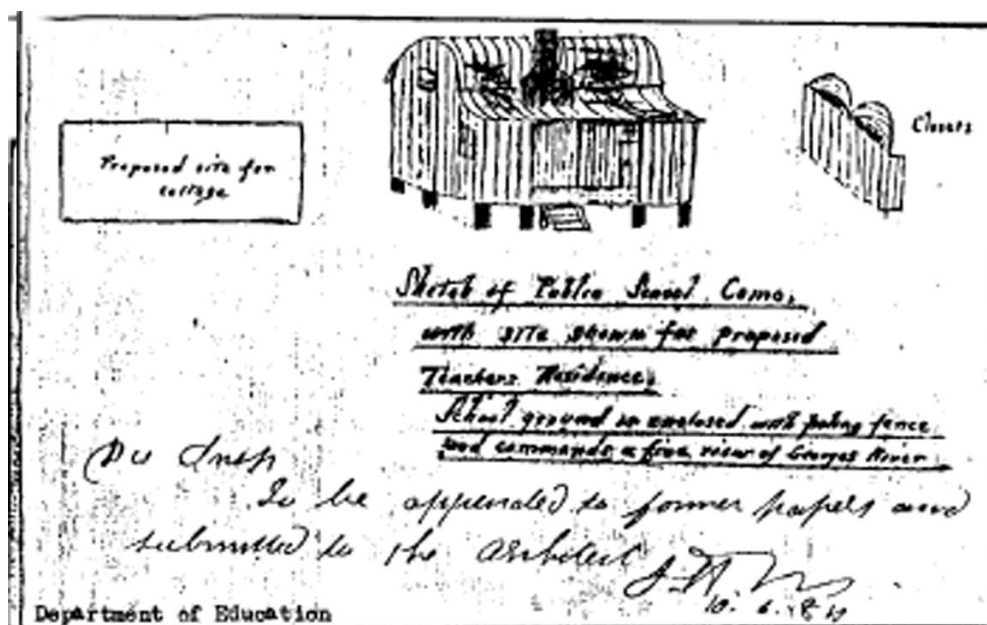 Proposed site for
cottage
Closets
Sketch of Public School, Como,
with site shown for proposed
Teachers Residence.
School ground is enclosed with paling fence
and commands a fine view of Georges River
To be appended to former papers and
submitted to the Architect
Department of Education